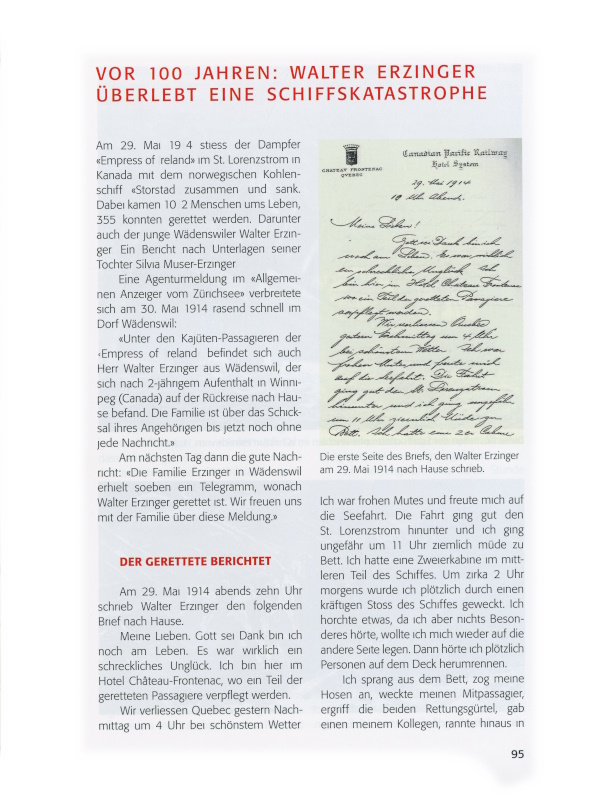 VOR 100 JAHREN: WALTER ERZINGER
ÜBERLEBT EINE SCHIFFSKATASTROPHE
Am 29. Mai 19 4 stiess der Dampfer
«Empress of reland» im St. Lorenzstrom in
Kanada mit dem norwegischen Kohlen-
schiff «Storstad zusammen und sank.
Dabei kamen 10 2 Menschen ums Leben,
355 konnten gerettet werden. Darunter
auch der junge Wädenswiler Walter Erzin-
ger Ein Bericht nach Unterlagen seiner
Tochter Silvia Muser-Erzinger
Eine Agenturmeldung im «Allgemei-
nen Anzeiger vom Zürichsee» verbreitete
sich am 30. Mai 1914 rasend schnell im
Dorf Wädenswil:
«Unter den Kajüten-Passagieren der
‹Empress of reland befindet sich auch
Herr Walter Erzinger aus Wädenswil, der
sich nach 2-jähngem Aufenthalt in Winni-
peg (Canada) auf der Rückreise nach Hau-
se befand. Die Familie ist über das Schick-
sal ihres Angehörigen bis jetzt noch ohne
jede Nachricht.»
Am nächsten Tag dann die gute Nach-
richt: «Die Familie Erzinger in Wädenswil
erhielt soeben ein Telegramm, wonach
Walter Erzinger gerettet ist. Wir freuen uns
mit der Familie über diese Meldung.»
DER GERETTETE BERICHTET
Am 29. Mai 1914 abends zehn Uhr
schrieb Walter Erzinger den folgenden
Brief nach Hause.
Meine Lieben. Gott sei Dank bin ich
noch am Leben. Es war wirklich ein
schreckliches Unglück. Ich bin hier im
Hotel Château-Frontenac, wo ein Teil der
geretteten Passagiere verpflegt werden.
Wir verliessen Quebec gestern Nach-
mittag um 4 Uhr bei schönstem Wetter
CHATEAU FRONTENAC
QUEBEC
Canadian Pacific Railway
Hotel System
29. Mai 1914
10 Uhr Abend.
Meine Lieben!
Gott sei Dank bin ich
noch am Leben. Es war wirklich
ein schreckliches Unglück. Ich
bin hier im Hotel Chateau Frontenac
wo ein Teil der geretteten Passagiere
verpflegt werden.
Wir verliessen Quebec
gestern Nachmittag um 4 Uhr
bei schönstem Wetter. Ich war
frohen Mutes und freute mich
auf die Seefahrt. Die Fahrt
ging gut den St. Lorenzstrom
hinunter und ich ging ungefähr
um 11 Uhr ziemlich müde zu
Bett. Ich hatte eine 2er Cabine
Die erste Seite des Briefs, den Walter Erzinger
am 29. Mai 1914 nach Hause schrieb.
Ich war frohen Mutes und freute mich auf
die Seefahrt. Die Fahrt ging gut den
St. Lorenzstrom hinunter und ich ging
ungefähr um 11 Uhr ziemlich müde zu
Bett. Ich hatte eine Zweierkabine im mitt-
leren Teil des Schiffes. Um zirka 2 Uhr
morgens wurde ich plötzlich durch einen
kräftigen Stoss des Schiffes geweckt. Ich
horchte etwas, da ich aber nichts Beson-
deres hörte, wollte ich mich wieder auf die
andere Seite legen. Dann hörte ich plötzlich
Personen auf dem Deck herumrennen.
Ich sprang aus dem Bett, zog meine
Hosen an, weckte meinen Mitpassagier,
ergriff die beiden Rettungsgürtel, gab
einen meinem Kollegen, rannte hinaus in
95